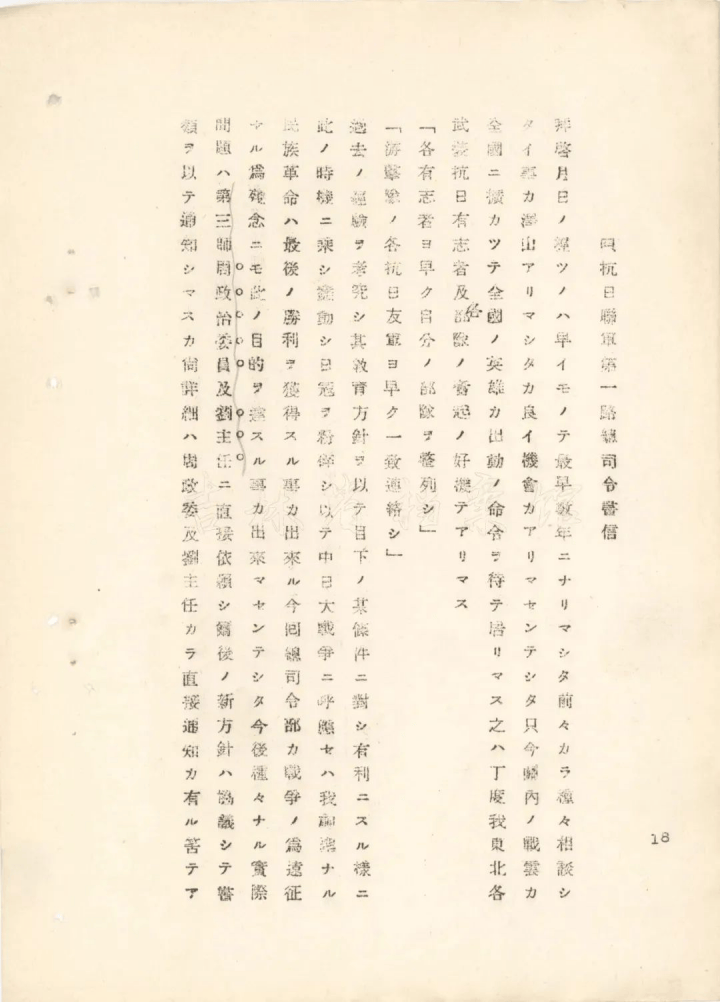 抗日聯軍第一路總司令書信
拜啓月日ノ經ツノハ早イモノテ最早數年ニナリマシタ前々カラ種々相談シ
タイ事カ澤山アリマシタカ良イ機會カアリマセンテシタ只今關內ノ戰雲カ
全國ニ擴カツテ全國ノ英雄カ出動ノ命令ヲ待テ居リマス之ハ丁度我東北各
武裝抗日有志者及部隊ノ奮起ノ好機テアリマス
「各有志者ヨ早ク自分ノ部隊ヲ整列シ」
「游擊隊ノ各抗日友軍ヨ早ク一致連絡シ」
過去ノ經驗ヲ考究シ其敎育方針ヲ以テ目下ノ某條件ニ對シ有利ニスル樣ニ
此ノ時機ニ乘シ變動シ日冠ヲ粉碎シ以テ中日大戰爭ニ呼應セハ我ナル
民族革命ハ最後ノ勝利ヲ獲得スル事カ出來ル今回總司令部カ戰爭ノ爲遠征
セル爲殘念ニモ此ノ目的ヲ達スル事カ出來マセンテシタ今後種々ナル實際
問題ハ第三師周政治委員及劉主任ニ直接依賴シ爾後ノ新方針ハ協議シテ書
類ヲ以テ通知シマスカ尙詳細ハ周政委及劉主任カラ直接通知カ有ル筈テア
18